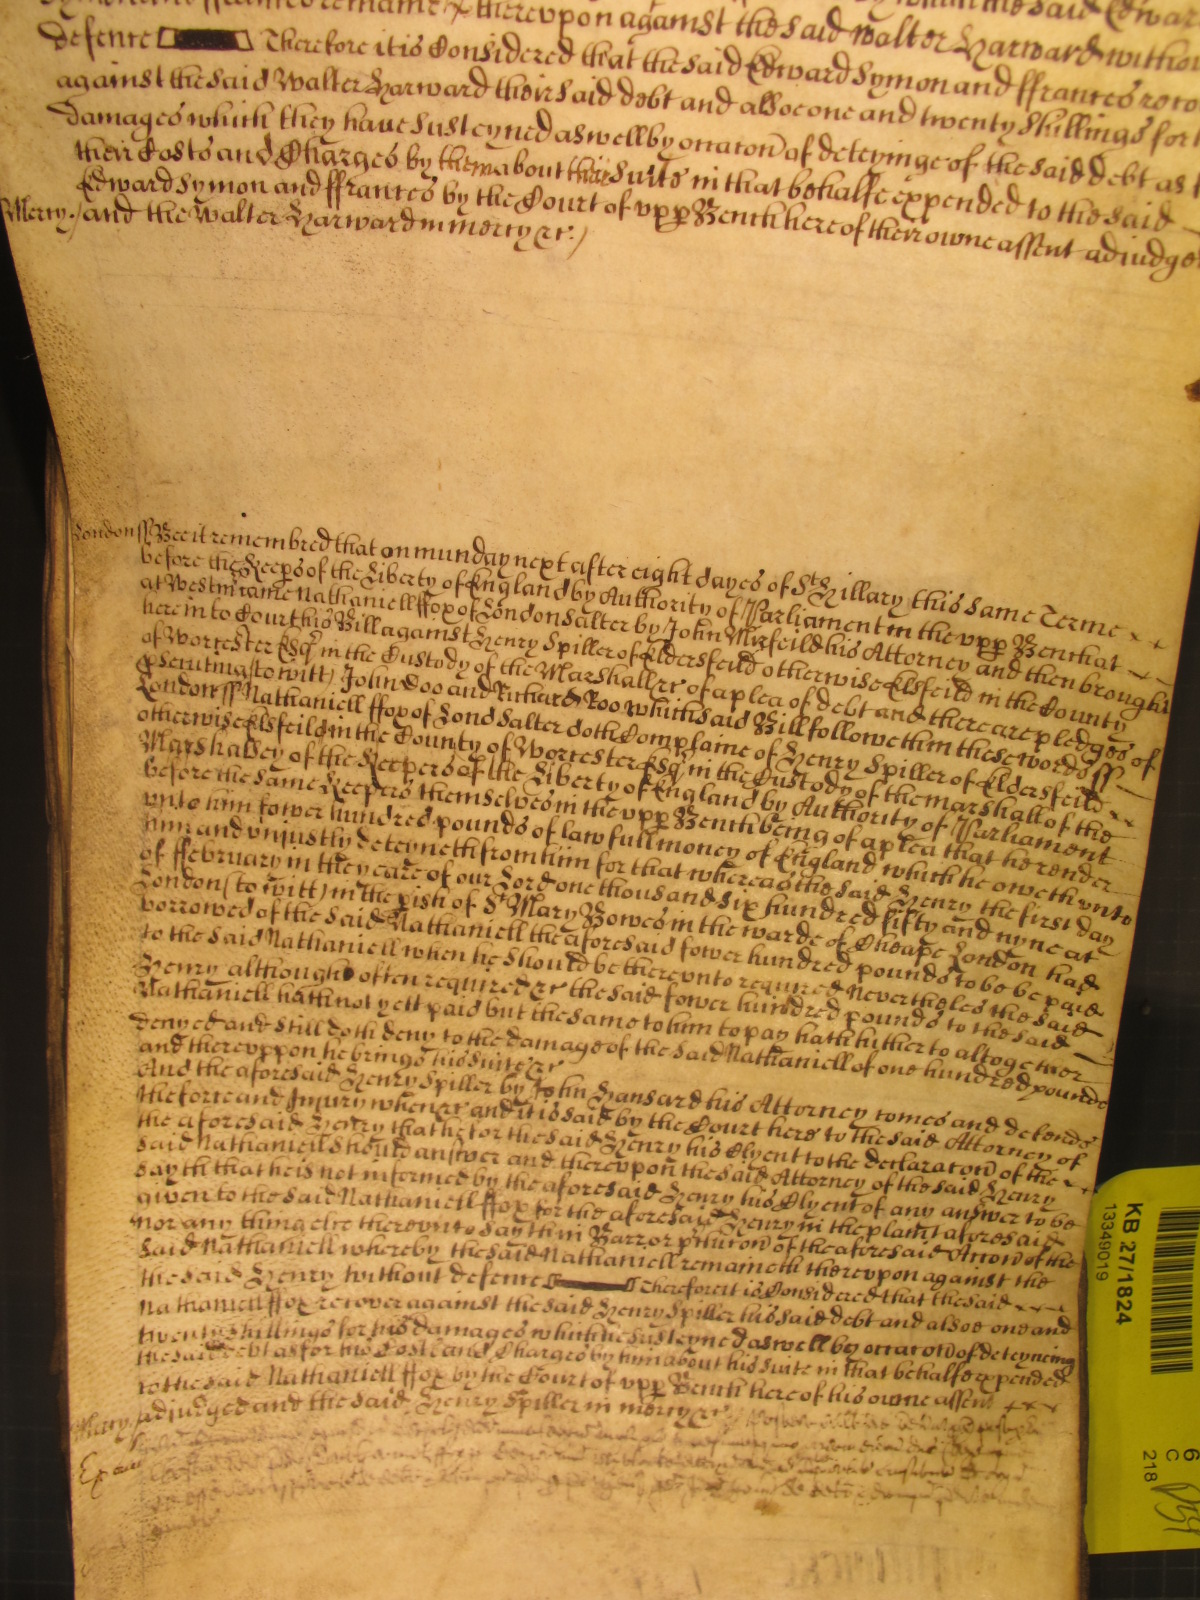 thereupon against the said Walter Harward withou
defence Therefore it is Considered that the said Edward Symon and ffrances reco
against the said Walter Harward their said debt and alsoe one and twenty shillings for
damages which they have susteyned aswell by occacon of deteyinge of the said debt as
their Costs and Charges by them about their suite in that behalfe expended to the said
Edward Symon and ffrances by the Court of upp Bench here of their owne assent adjudge
Mercy and the Walter Harward in mercy &c
London ss Bee it remembred that on munday next after eight dayes of St Hillary this same Terme
before the Keeps of the Liberty of England by Authority of Parliament in the upp Bench at
at Westm came Nathaniell ffox of London Salter by John his Attorney and then brought
here into Court his Bill against Henry Spiller of Eldersfeild otherwise Elsfeild in the County
of Worcester Esqr in the Custody of the Marshall &c of a plea of debt and there are pledges of
psecuting (to witt) John Doo and Richard Roo which said Bill followeth in these words ss
London ss Nathaniell ffox of Lond Salter doth Complaine of Henry Spiller of Eldersfeild
otherwise Elsfeild in the County of Worcester Esqr in the Custody of the marshall of the
Marshalsey of the Keepers of the Liberty of England by Authority of Parliament
before the same Keepers themselves in the upp Bench being of a plea that he render
unto him fower hundred pounds of lawfull money of England which he oweth unto
him and unjustly deteyneth from him for that whereas the said Henry the first day
of ffebruary in the yeare of our Lord one thousand six hundred fifty and nyne at
London (to witt) in the pish of St Mary Bowes in the warde of Cheape London had
borrowed of the said Nathaniell the aforesaid fower hundred pounds to be be paid
to the said Nathaniell when he should be thereunto required Nevertheles the said
Henry although often required &c the said fower hundred pounds to the said
Nathaniell hath not yett paid but the same to him to pay hath hitherto altogether
denyed and still doth deny to the damage of the said Nathaniell of one hundred pounds
and thereuppon he brings his suite &c
And the aforesaid Henry Spiller by John Hansard his Attorney comes and defends
the force and Injury when &c and it is said by the Court here to the said Attorney of
the aforesaid Henry that he for the said Henry his Clyent to the declaracon of the
said Nathaniell should answer and thereupon the said Attorney of the said Henry
sayth that he is not informed by the aforesaid Henry his Clyent of any answer to be
given to the said Nathaniell ffox for the aforesaid Henry in the plaint aforesaid
nor any thing else thereunto sayth in Barr or of the aforesaid Accon of the
said Nathaniell whereby the said Nathaniell remaineth thereupon against the
the said Henry without defence Therefore it is Considered that the said
Nathaniell ffox recover against the said Henry Spiller his said debt and alsoe one and
twenty shillings for his damages which he susteyned aswell by occacon of deteyneing
the said debt as for his Costs and Charges by him about his suite in that behalfe expended
to the said Nathaniell ffox by the Court of upp Bench here of his owne assent
Mercy adjudged and the said Henry Spiller in mercy &c
KB 27/1824
13349019
6
C
218